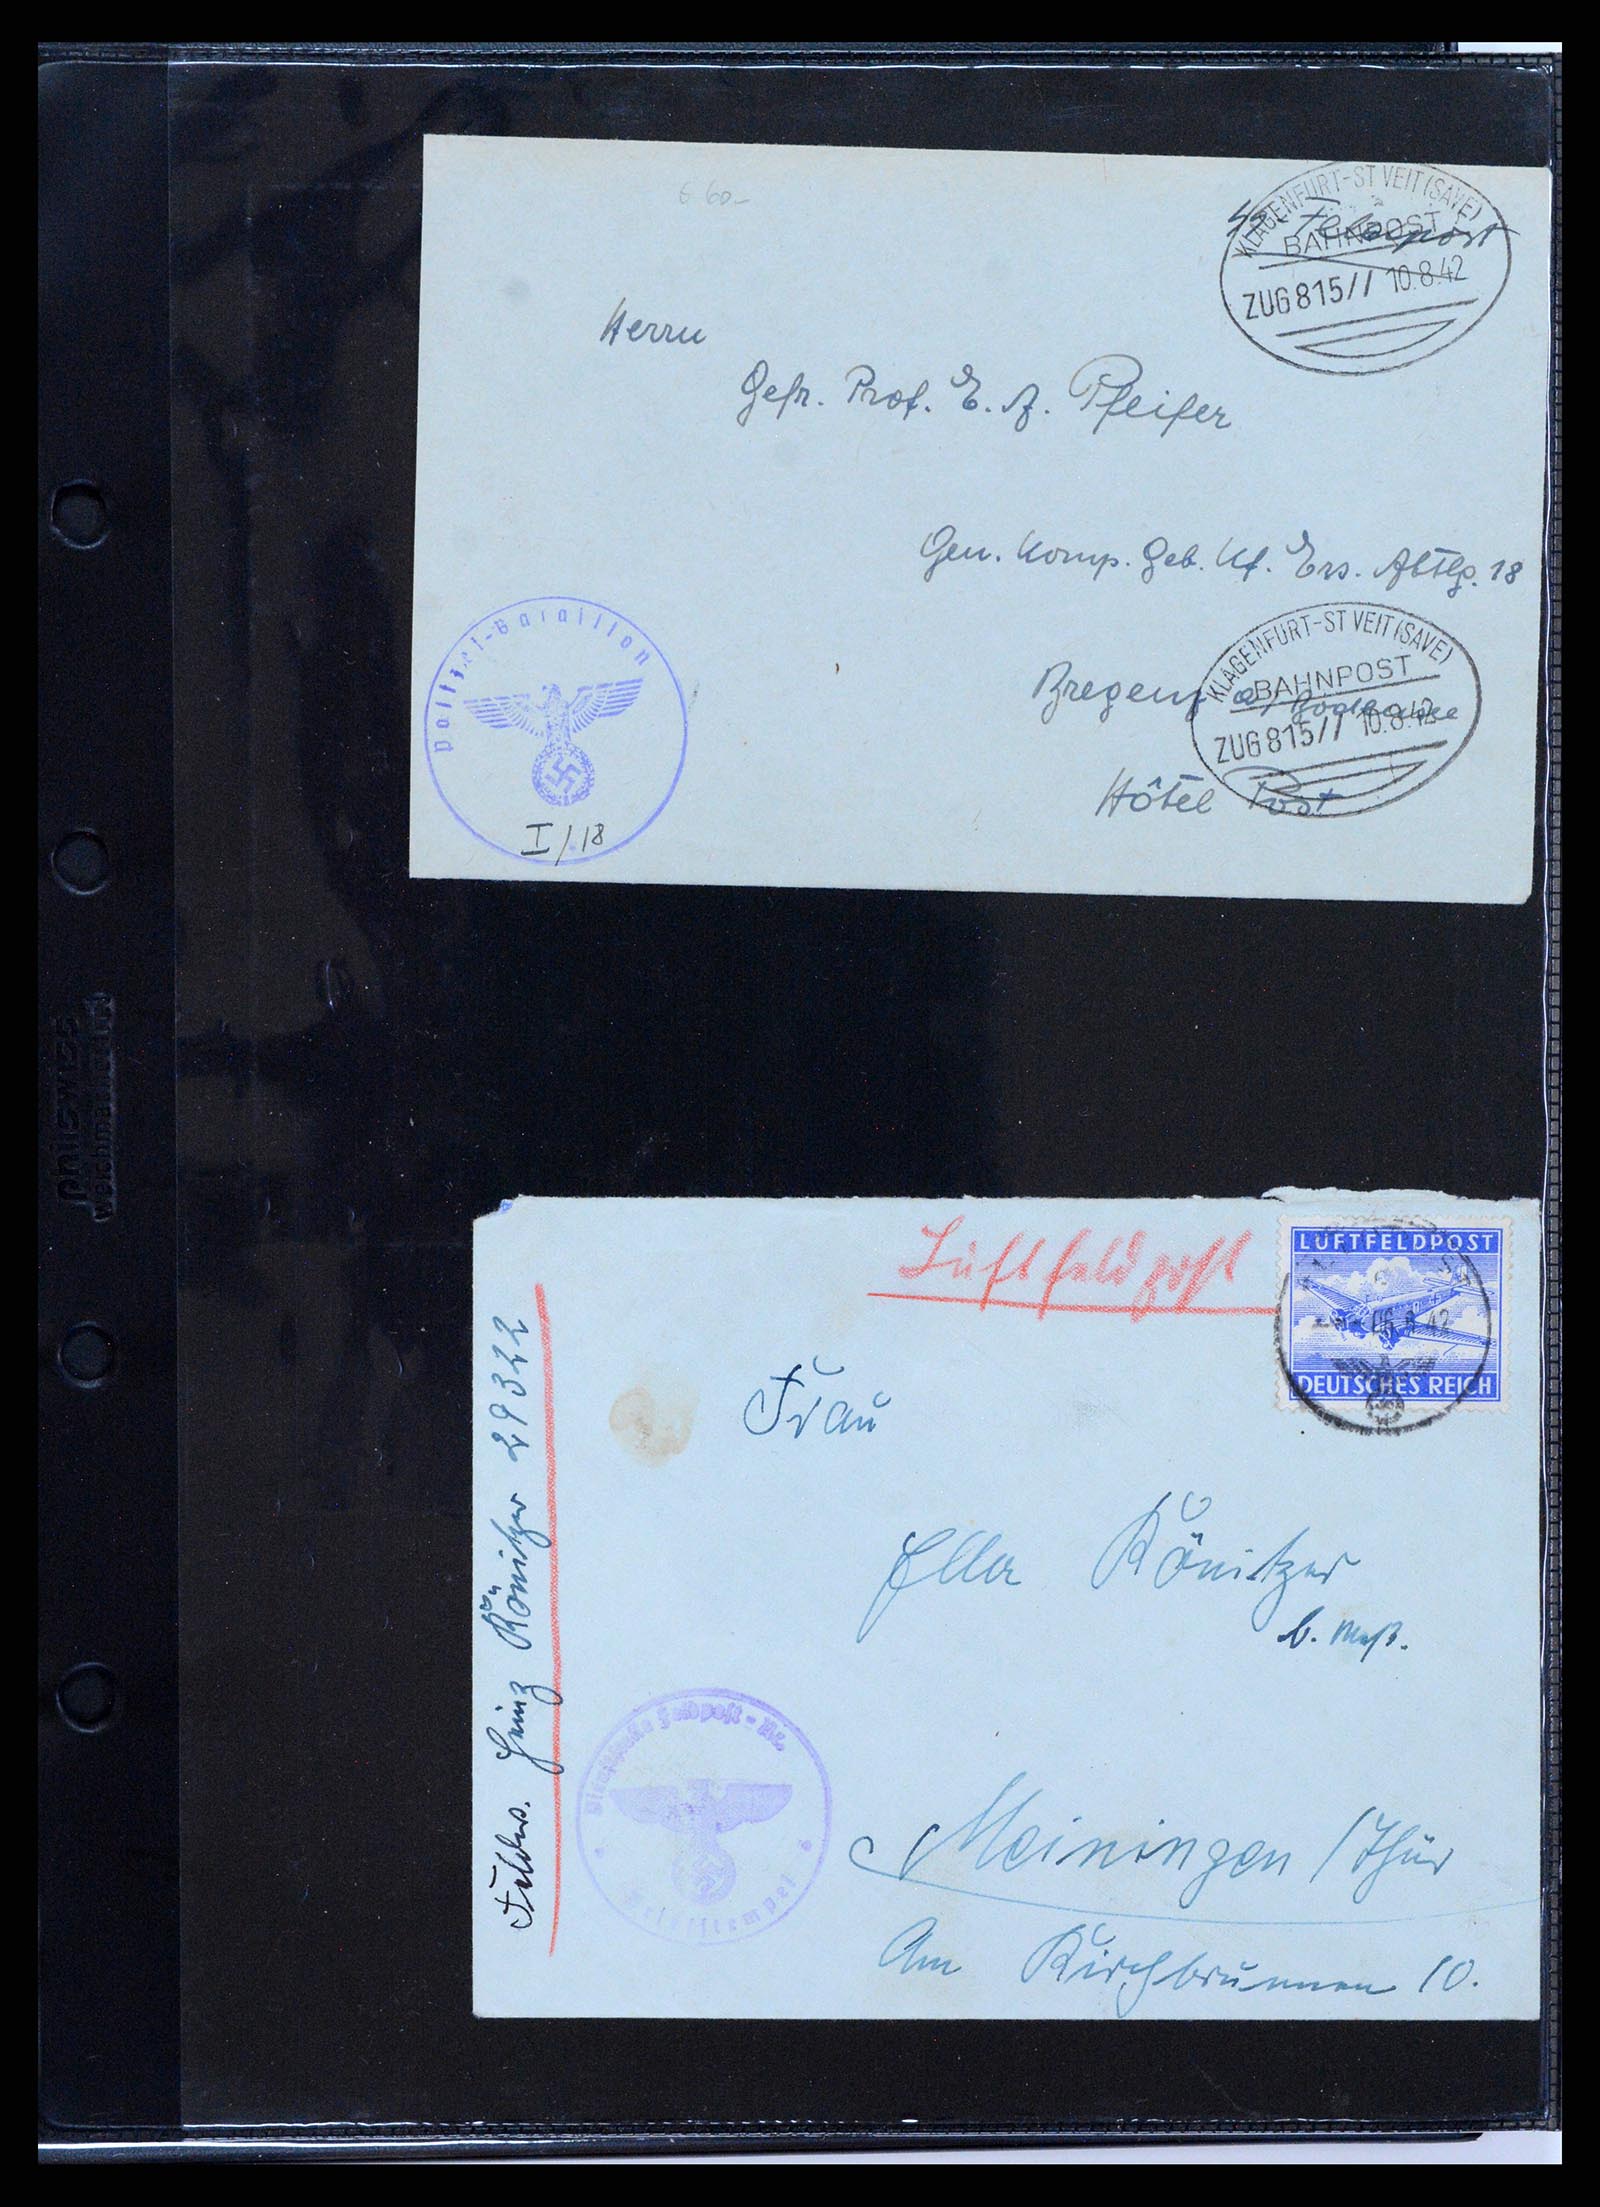 KLAGENFURT-ST VEIT (SAVE)
BAHNPOST
ZUG 815 // 10.8.42
Feldpost
Herrn
Gefr. Prof. E. A. Pfeifer
Gen. Komp. Geb. Kf. Ers. Abtlg. 18
Bregenz a/Bodensee
Hôtel Post
KLAGENFURT-ST VEIT (SAVE)
BAHNPOST
ZUG 815 // 10.8.42
Polizei-Bataillon
I/18
philswiss
weichmacherfrei
Luftfeldpost
LUFTFELDPOST
DEUTSCHES REICH
42
Frau
Ella Könitzer
b. Meß.
Meiningen/Thür
Am Kirchbrunnen 10.
Feldw. Heinz Könitzer 29322
Dienststelle Feldpost-Nr.
Briefstempel